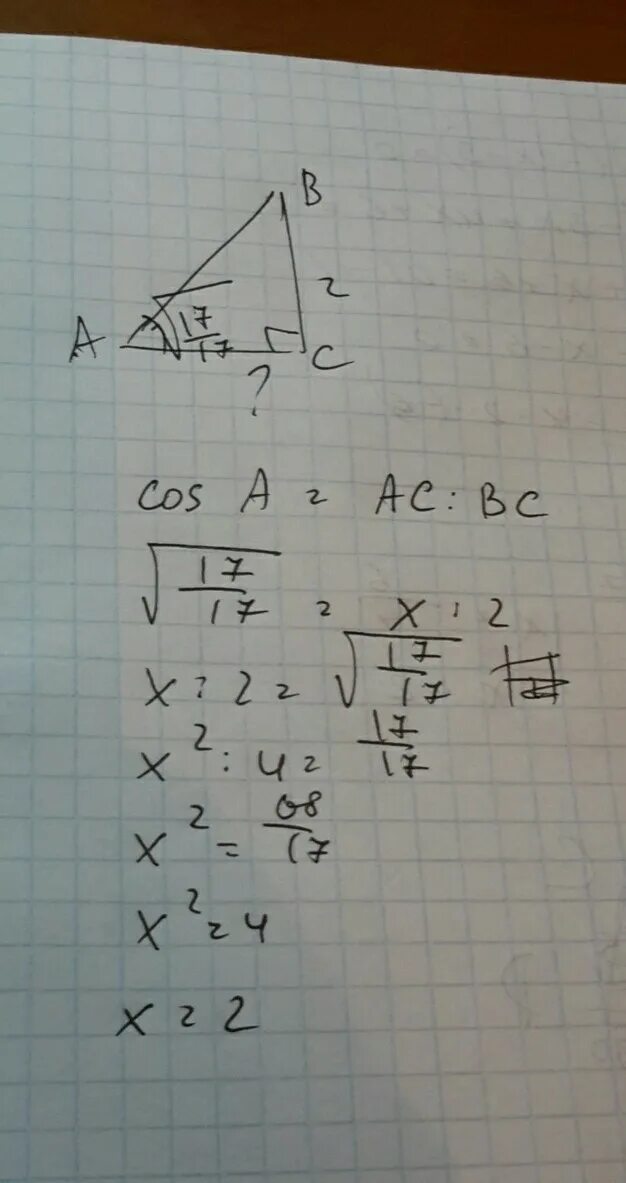 B
2
A √17/17 C
?
cos A = AC : BC
√(17/17) = x : 2
x : 2 = √(17/17)
x² : 4 = 17/17
x² = 68/17
x² = 4
x = 2